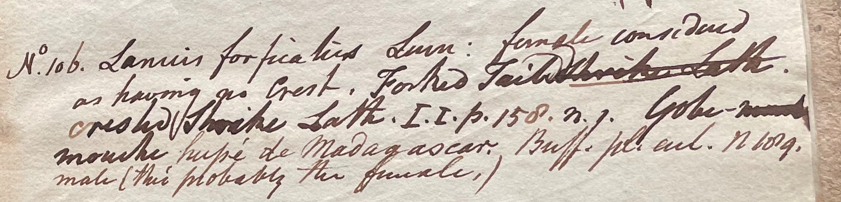 No. 106. Lanius forficatus Linn: female considered
as having no Crest. Forked Tail'd Shrike Lath.
crested Shrike Lath. I.I. p. 158. n. 7. Gobe-mouch
mouche hupé de Madagascar. Buff. pl. enl. N 189.
male (this probably the female.)